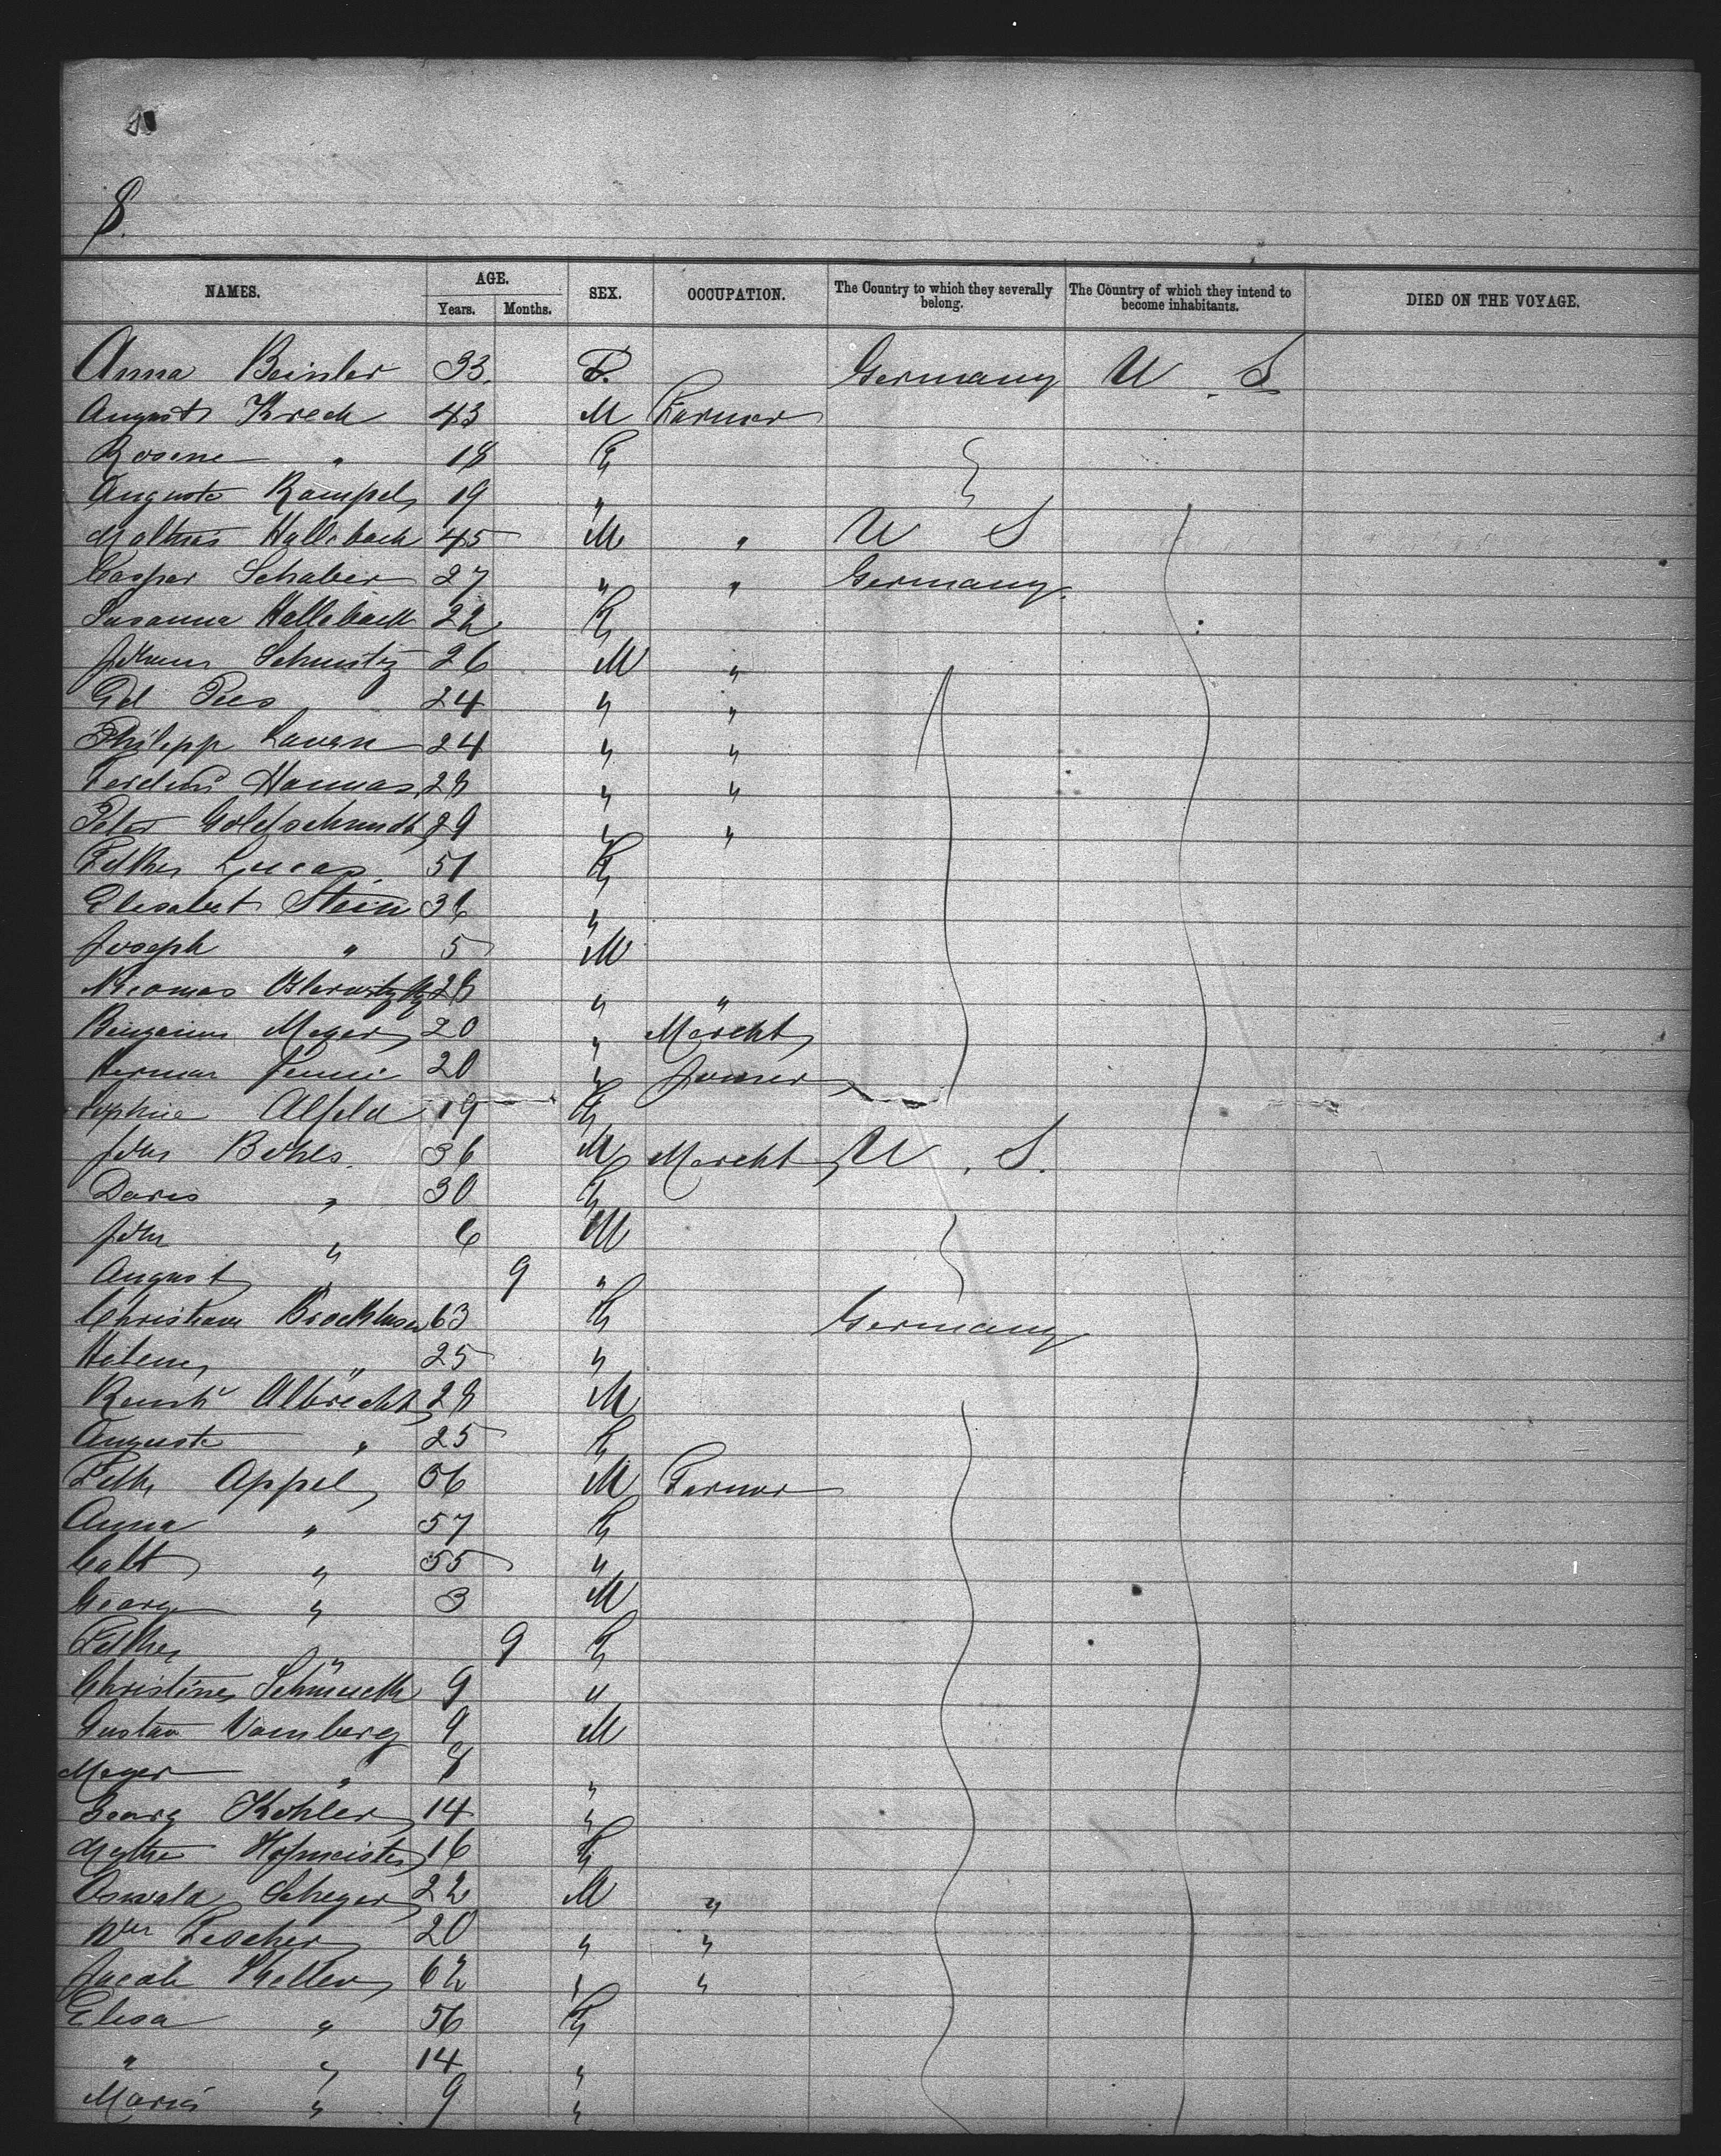 8.
NAMES. AGE. SEX. OCCUPATION. The Country to which they severally belong. The Country of which they intend to become inhabitants. DIED ON THE VOYAGE.
Years. Months.
Anna Beisler 33. F. Germany U. S
August Krech 43 M Farmer
Rosine " 18 F
Auguste Rampel 19 "
Mathias Hallebach 45 M " U S
Caspar Schaber 27 " " Germany.
Susanna Hallebach 22 F
Schmitz 26 M "
Ed 24 " "
Philipp Laven 24 " "
Hannas 28 " "
Peter Goldschmidt 29 " "
Lucas 51 F
Elisabet Stein 36 "
Joseph " 5 M
28 " "
Benjamin Meyer 20 " Mercht
Herman 20 "
Sophie Alfeld 19 F
John Bohls. 36 M Mercht U. S.
Doris " 30 F
John " 6 M
August " 9 "
Christiane Brockhusen 63 F Germany
Helene " 25 "
Albrecht 28 M
Auguste " 25 F
Appel 56 M Farmer
Anna " 57 F
" 55 "
Georg " 3 M
" 9 F
Christine Schmuck 9 "
Gustav Vomberg 9 M
Meyer " 8 "
Georg Kohler 14 "
Hofmeister 16 F
Oswald Scheyer 22 M "
Wm Fischer 20 " "
Jacob Keller 62 " "
Elisa " 56 F
" " 14 "
Maria " 9 "